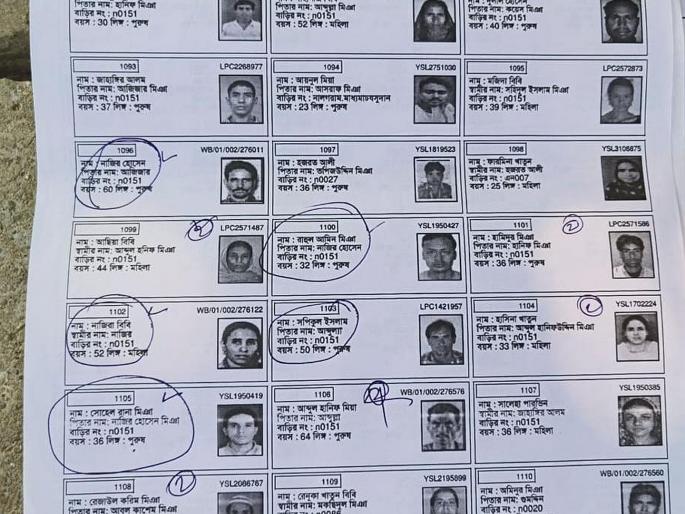 পিতার নাম: হানিফ মিঞা
বাড়ির নং : n0151
বয়স : 30 লিঙ্গ : পুরুষ
বাড়ির নং : n0151
বয়স : 52 লিঙ্গ : মহিলা
বাড়ির নং : n0151
বয়স : 40 লিঙ্গ : পুরুষ
1093
LPC2268977
নাম : জাহাঙ্গির আলম
পিতার নাম: আজিজার মিঞা
বাড়ির নং : n0151
বয়স : 37 লিঙ্গ : পুরুষ
1094
YSL2751030
নাম : আয়নুল মিয়া
পিতার নাম: আসরাফ মিঞা
বাড়ির নং :
বয়স : 23 লিঙ্গ : পুরুষ
1095
LPC2572873
নাম : মজিনা বিবি
স্বামীর নাম: সহিদুল ইসলাম মিঞা
বাড়ির নং : n0151
বয়স : 39 লিঙ্গ : মহিলা
1096
WB/01/002/276011
নাম : নাজির হোসেন
পিতার নাম: আজিজার
বাড়ির নং : n0151
বয়স : 60 লিঙ্গ : পুরুষ
1097
YSL1819523
নাম : হজরত আলী
পিতার নাম: তপিজউদ্দিন মিঞা
বাড়ির নং : n0027
বয়স : 36 লিঙ্গ : পুরুষ
1098
YSL3106875
নাম : ফারমিনা খাতুন
স্বামীর নাম: হজরত আলী
বাড়ির নং : এন007
বয়স : 25 লিঙ্গ : মহিলা
1099
LPC2571487
নাম : আছিয়া বিবি
স্বামীর নাম: আব্দুল হানিফ মিঞা
বাড়ির নং : n0151
বয়স : 44 লিঙ্গ : মহিলা
1100
YSL1950427
নাম : রাহুল আমিন মিঞা
পিতার নাম: নাজির হোসেন
বাড়ির নং : n0151
বয়স : 32 লিঙ্গ : পুরুষ
1101
LPC2571586
নাম : হামিদুর মিঞা
পিতার নাম: হানিফ মিঞা
বাড়ির নং : n0151
বয়স : 36 লিঙ্গ : পুরুষ
1102
WB/01/002/276122
নাম : নাজিরা বিবি
স্বামীর নাম: নাজির
বাড়ির নং : n0151
বয়স : 52 লিঙ্গ : মহিলা
1103
LPC1421957
নাম : সপিকুল ইসলাম
পিতার নাম: আব্দুল্যা
বাড়ির নং : n0151
বয়স : 50 লিঙ্গ : পুরুষ
1104
YSL1702224
নাম : হাসিনা খাতুন
পিতার নাম: আব্দুল হানিফউদ্দিন মিঞা
বাড়ির নং : n0151
বয়স : 33 লিঙ্গ : মহিলা
1105
YSL1950419
নাম : সোহেল রানা মিঞা
পিতার নাম: নাজির হোসেন মিঞা
বাড়ির নং : n0151
বয়স : 36 লিঙ্গ : পুরুষ
1106
WB/01/002/276576
নাম : আব্দুল হানিফ মিয়া
পিতার নাম: আব্দুল্লা
বাড়ির নং : n0151
বয়স : 64 লিঙ্গ : পুরুষ
1107
YSL1950385
নাম : সালেহা পারভিন
স্বামীর নাম: জাহাঙ্গির আলম
বাড়ির নং : n0151
বয়স : 36 লিঙ্গ : মহিলা
1108
YSL2086767
নাম : রেজাউল করিম মিঞা
পিতার নাম: আবুল কাশেম মিঞা
1109
YSL2195899
নাম : রেনুকা খাতুন বিবি
স্বামীর নাম: মকছিদুল মিঞা
1110
WB/01/002/276560
নাম : অমিনুর মিঞা
পিতার নাম: গুমদ্দিন
বাড়ির নং : n0020